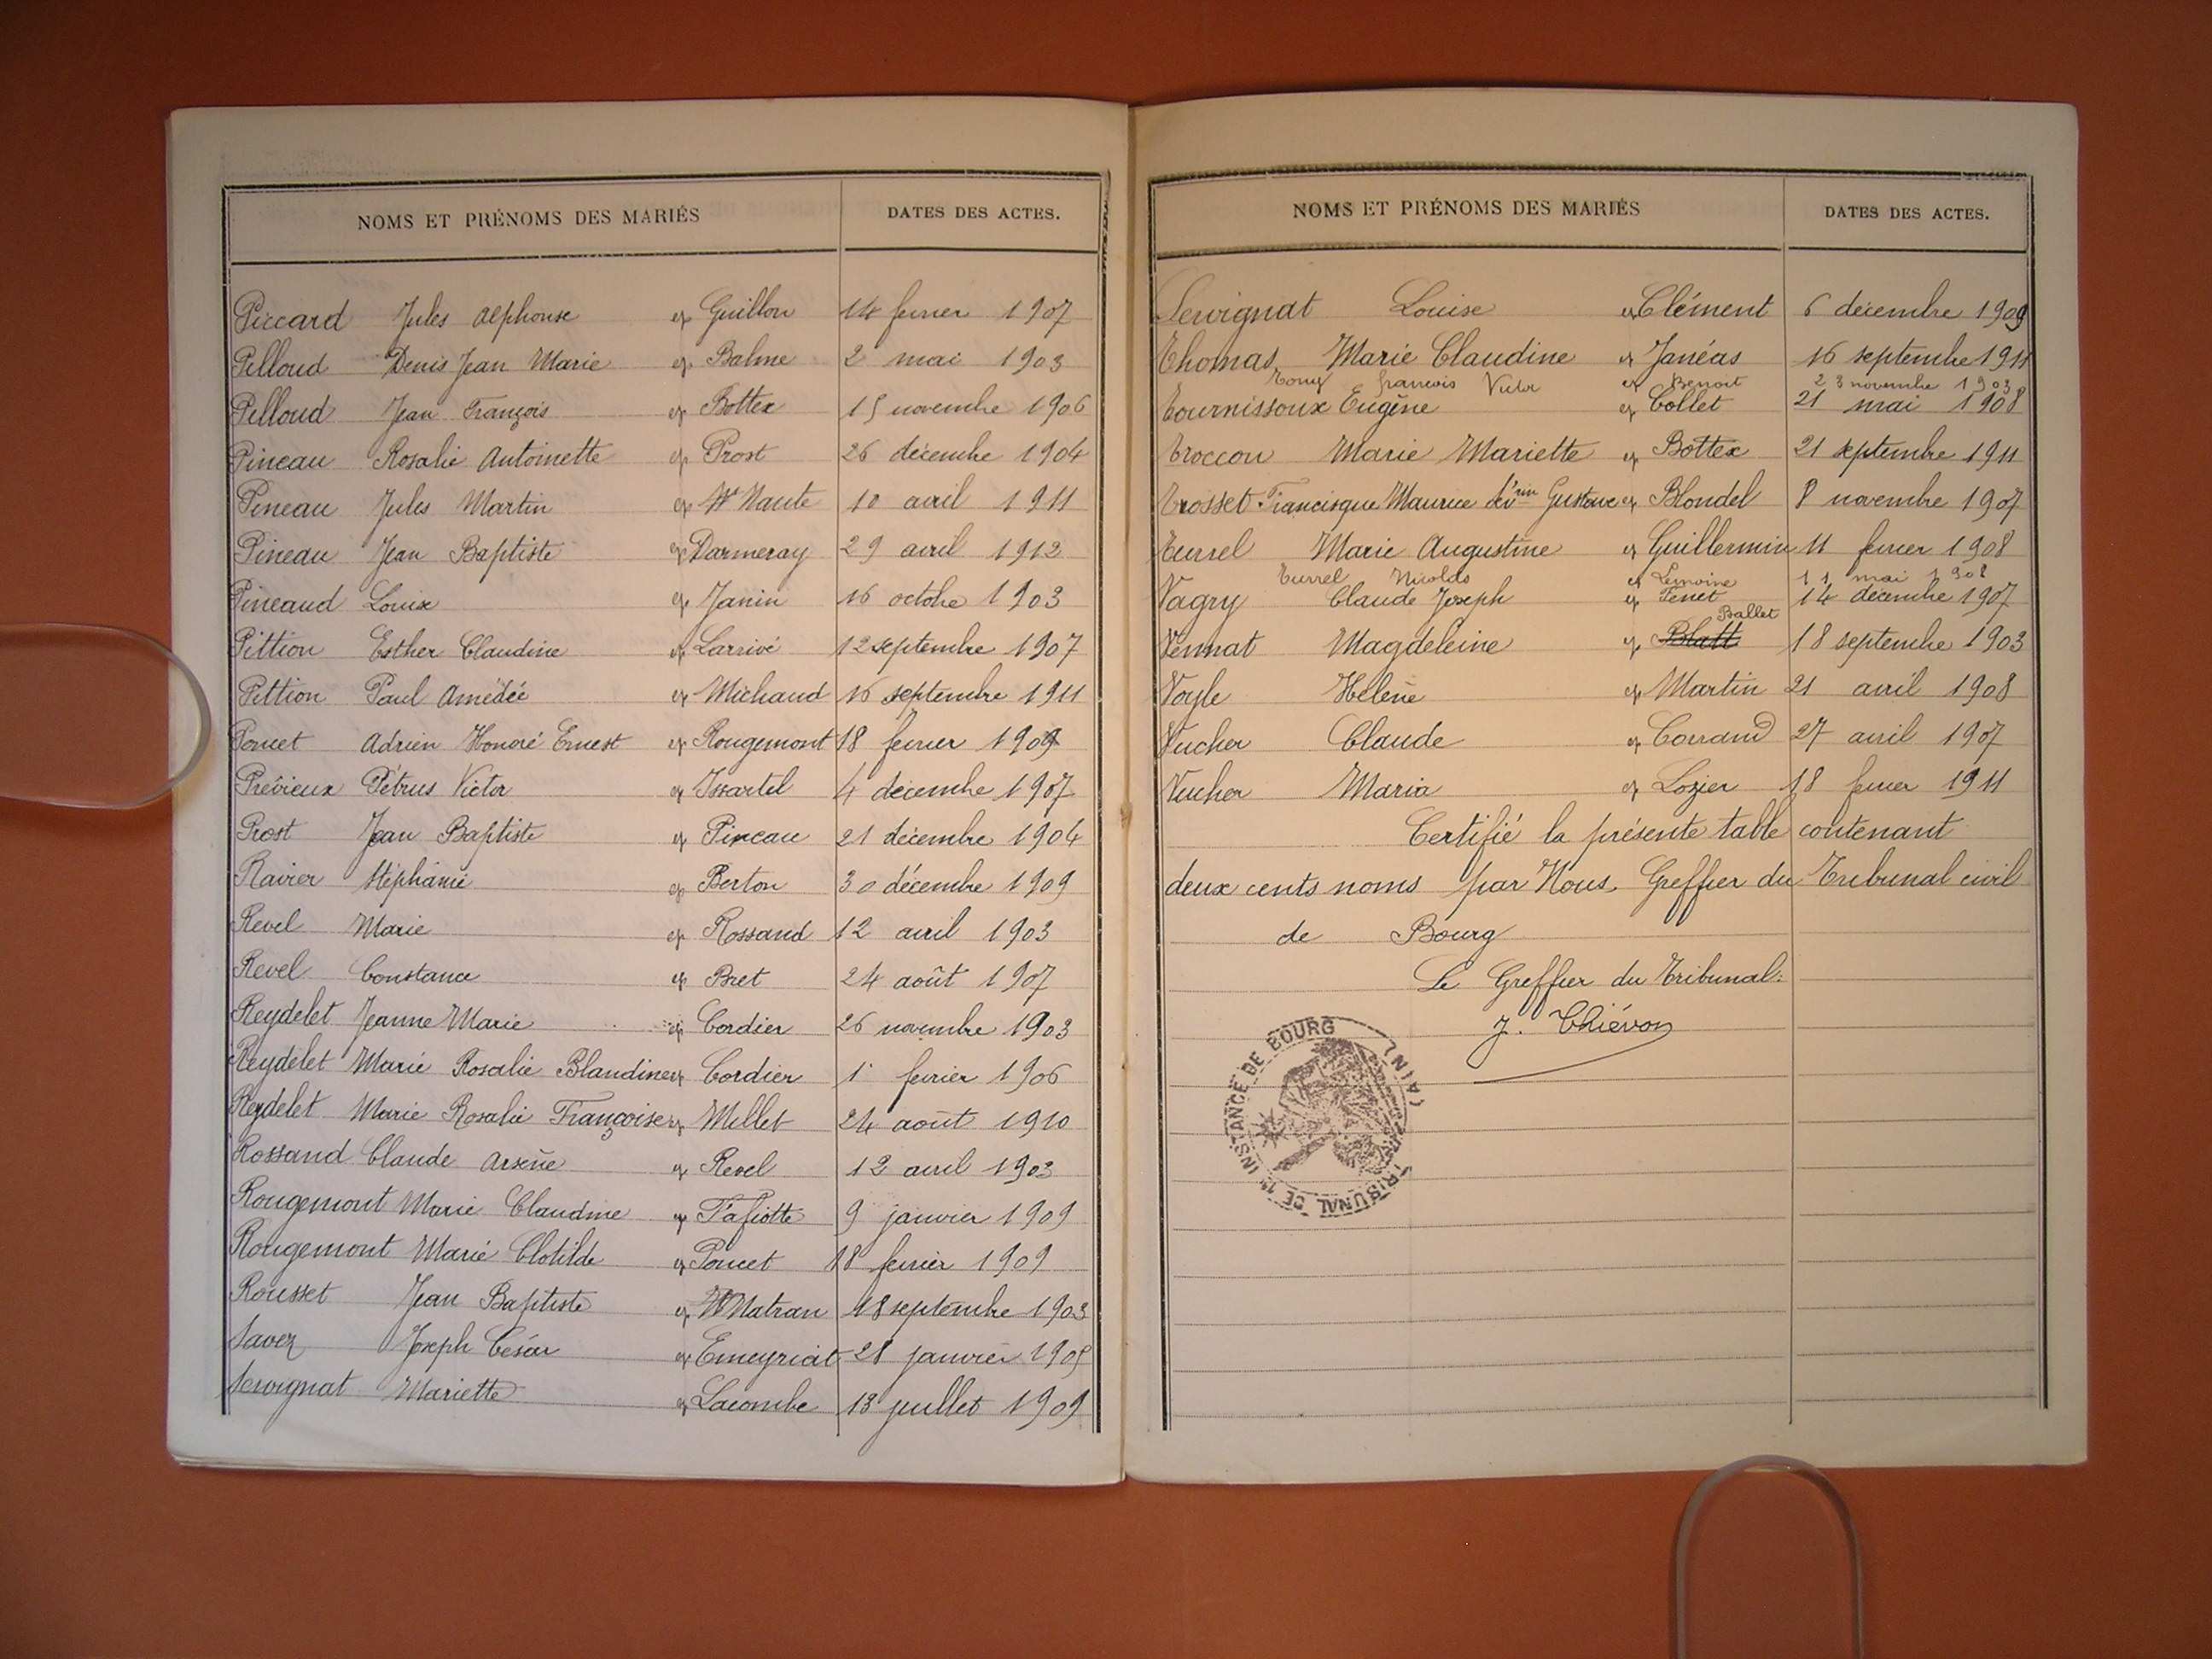 NOMS ET PRÉNOMS DES MARIÉS DATES DES ACTES.
Piccard Jules Alphonse ep Guillon 14 fevrier 1907
Pilloud Denis Jean Marie ep Balme 2 mai 1903
Pilloud Jean François ep Bottex 15 novembre 1906
Pineau Rosalie Antoinette ep Prost 26 décembre 1904
Pineau Jules Martin ep Nante 10 avril 1911
Pineau Jean Baptiste ep Darmeray 29 avril 1912
Pineaud Louise ep Janin 16 octobre 1903
Pittion Esther Claudine ep Larrivé 12 septembre 1907
Pittion Paul Amédée ep Michaud 16 septembre 1911
Poncet Adrien Honoré Ernest ep Rougemont 18 fevrier 1909
Prévieux Pétrus Victor ep Issartel 4 décembre 1907
Prost Jean Baptiste ep Pineau 21 décembre 1904
Ravier Stéphanie ep Berton 30 décembre 1909
Revel Marie ep Rossand 12 avril 1903
Revel Constance ep Bret 24 août 1907
Reydelet Jeanne Marie ep Cordier 26 novembre 1903
Reydelet Marie Rosalie Blandine ep Cordier 1 fevrier 1906
Reydelet Marie Rosalie Françoise ep Millet 24 août 1910
Rossand Claude Arsène ep Revel 12 avril 1903
Rougemont Marie Claudine ep Tafiotte 9 janvier 1909
Rougemont Marie Clotilde ep Poncet 18 fevrier 1909
Rousset Jean Baptiste ep Matran 18 septembre 1903
Savez Joseph César ep Emeyriat 28 janvier 1905
Servignat Mariette ep Lacombe 13 juillet 1909
NOMS ET PRÉNOMS DES MARIÉS DATES DES ACTES.
Servignat Louise ep Clément 6 décembre 1909
Thomas Marie Claudine ep Janéas 16 septembre 1911
Tony François Victor ep Benoit 23 novembre 1903
Tournissoux Eugène ep Collet 21 mai 1908
Troccon Marie Mariette ep Bottex 21 septembre 1911
Trosset Francisque Maurice Gustave ep Blondel 8 novembre 1907
Turrel Marie Augustine ep Guillermin 11 fevrier 1908
Turrel Nicolas ep Lemoine 11 mai 1908
Vagry Claude Joseph ep Tenet 14 décembre 1907
Ballet
Vennat Magdeleine ep Blatt 18 septembre 1903
Voyle Hélène ep Martin 21 avril 1908
Vucher Claude ep Corrand 27 avril 1907
Vucher Maria ep Lozier 18 fevrier 1911
Certifié la présente table contenant
deux cents noms par Nous Greffier du Tribunal civil
de Bourg
Le Greffier du Tribunal:
J. Thiévon
TRIBUNAL DE 1re INSTANCE DE BOURG (AIN)